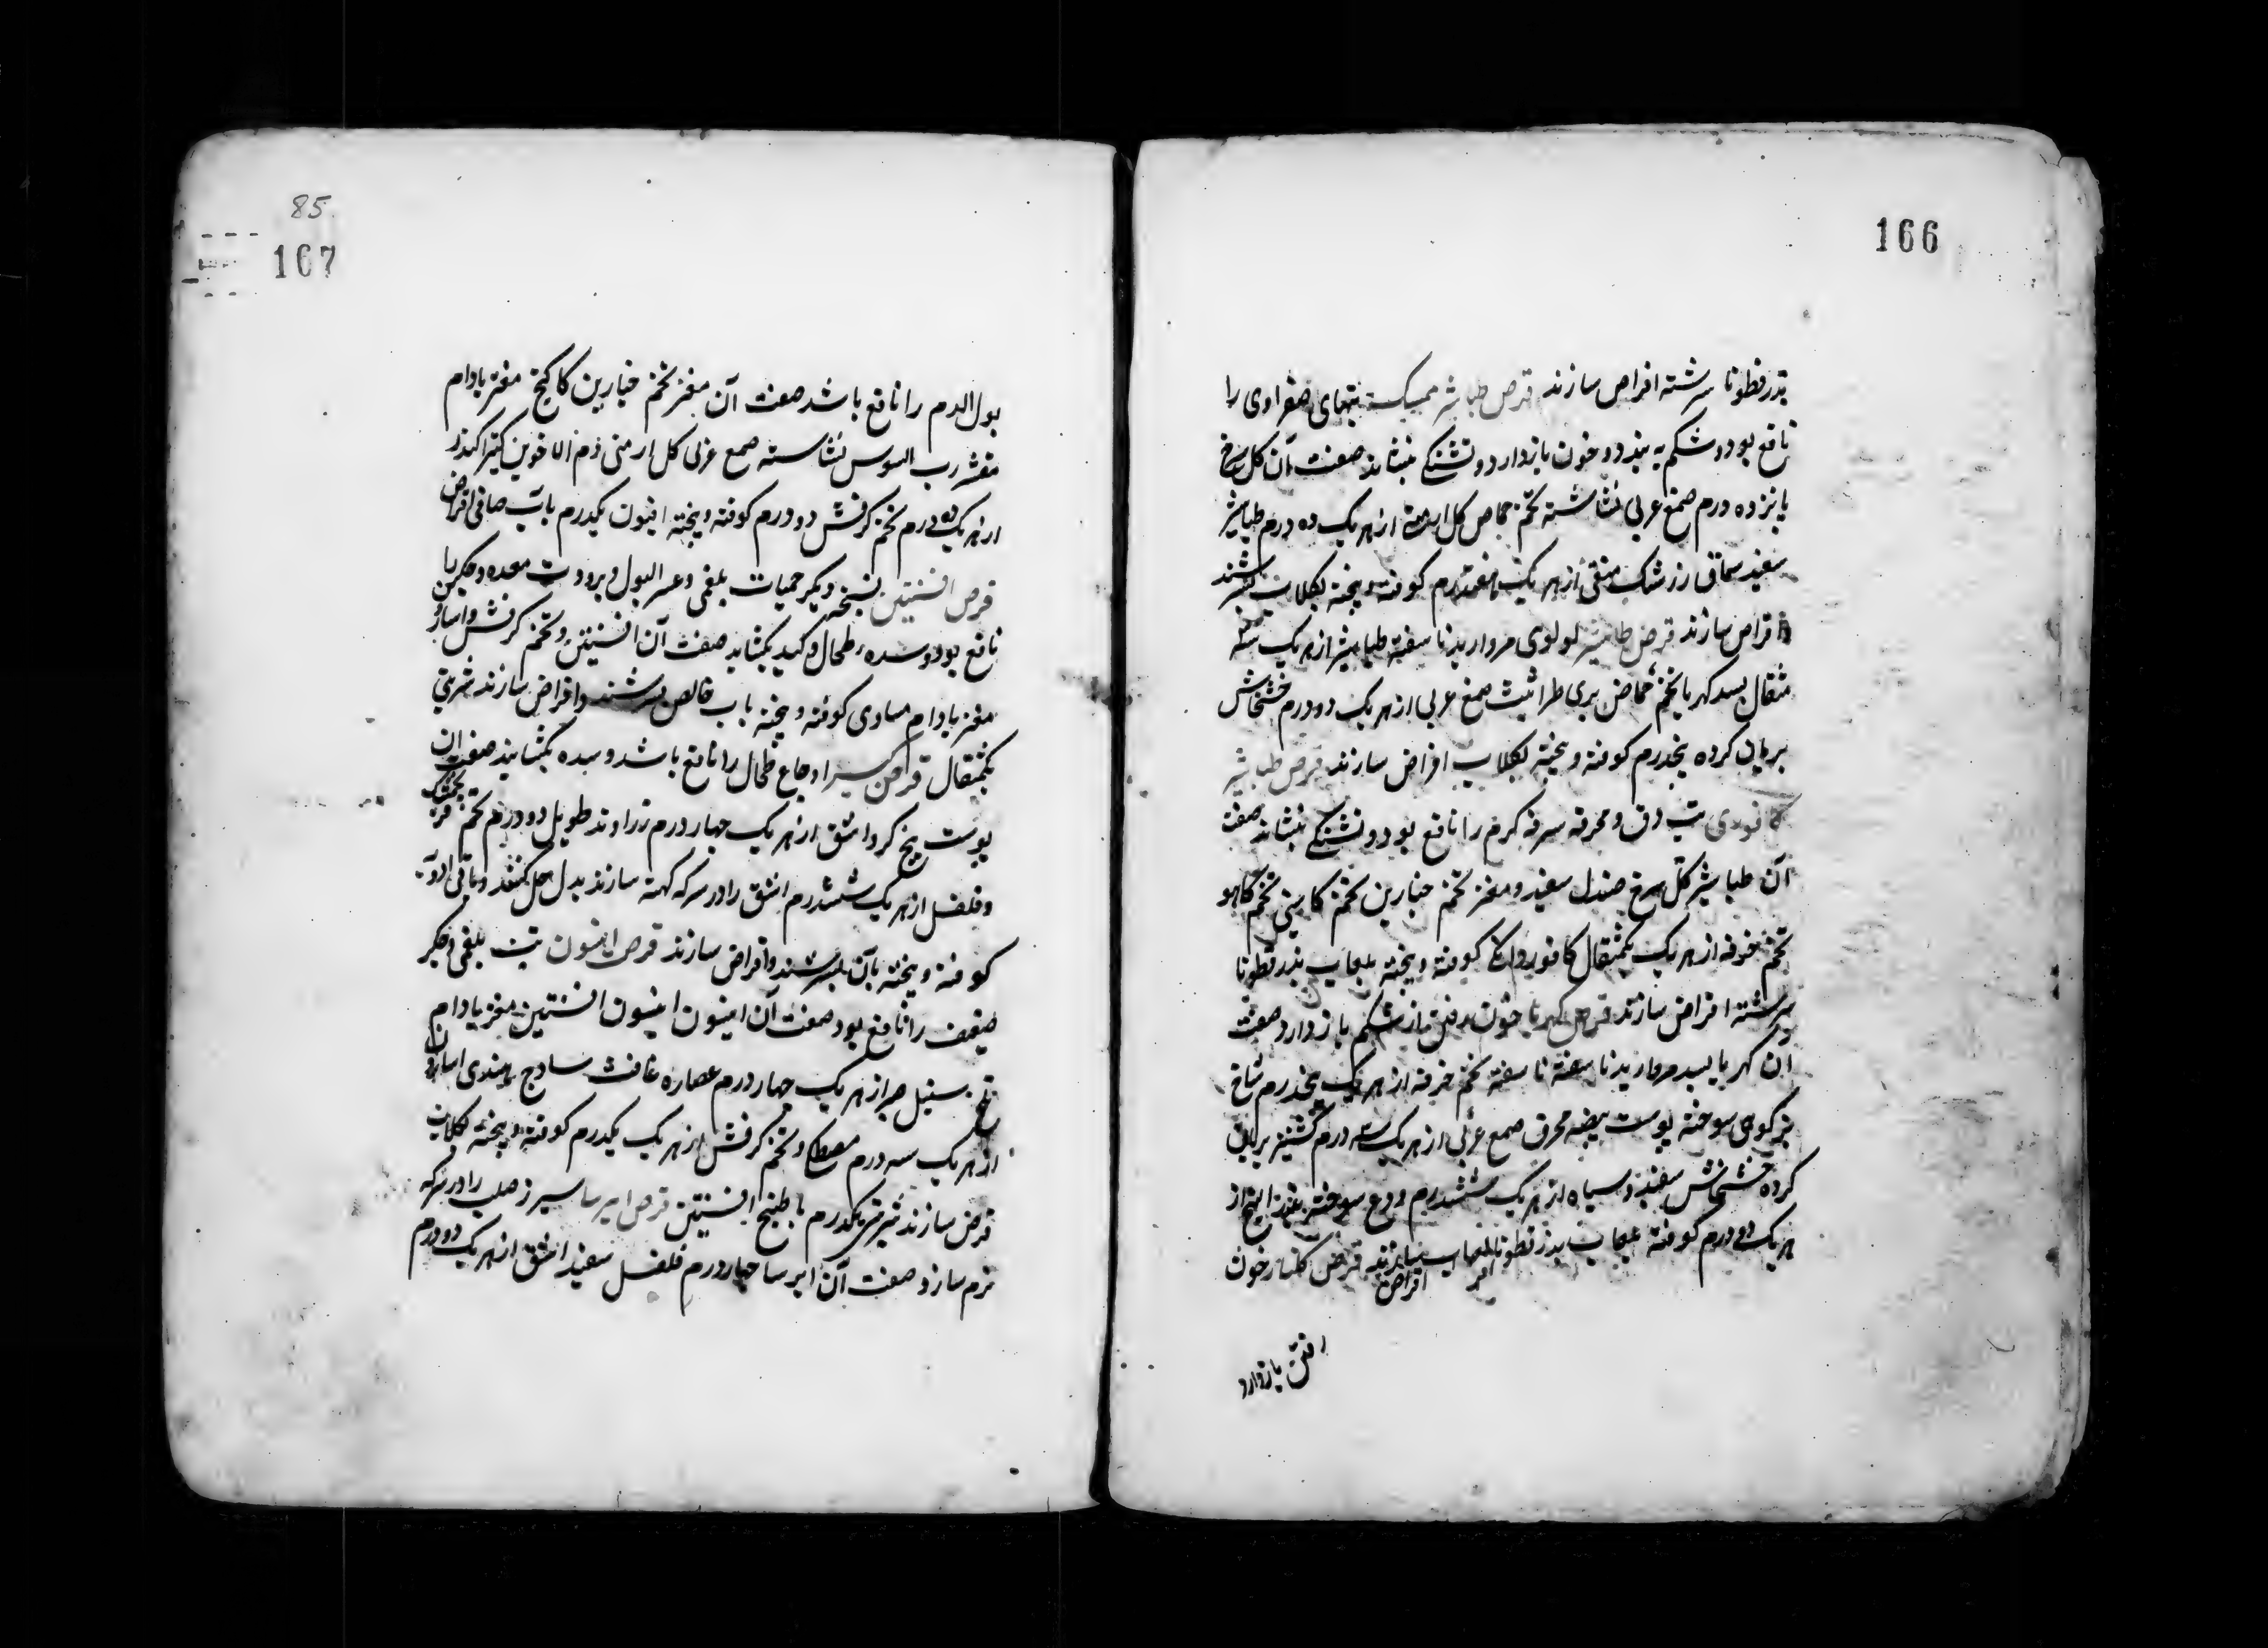 166
بذرقطونا سرشته اقراص سازند قرص طباشیر ممسک تبهای صفراوی را
نافع بود و شکم به بندد و خون بازدارد و تشنگی بنشاند صفت آن کل سرخ
پانزده درم صمغ عربی نشاسته تخم حماض کل ارمنی از هر یک ده درم طباشیر
سفید سماق زرشک منقی از هر یک هفتدرم کوفته و بیخته بکلاب بسرشند
اقراص سازند قرص طباشیر لولوی مروارید ناسفته طباشیر از هر یک سه
مثقال بسد کهربا تخم حماض بری طراثیث صمغ عربی از هر یک دو درم خشخاش
بریان کرده پنجدرم کوفته و بیخته بکلاب اقراص سازند قرص طباشیر
کافوری تب دق و محرقه سرفه کرم را نافع بود و تشنگی بنشاند صفت
آن طباشیر کل سرخ صندل سفید و مغز تخم خیارین تخم کاسنی تخم کاهو
تخم خرفه از هر یک یکمثقال کافور دانکی کوفته و بیخته بلعاب بذرقطونا
سرشته اقراص سازند قرص کهربا خون رفتن از شکم بازدارد صفت
ان کهربا بسد مروارید ناسفته تخم خرفه از هر یک پنجدرم شاخ
بز کوهی سوخته پوست بیضه محرق صمغ عربی از هر یک سه درم کشنیز بریان
کرده خشخاش سفید و سیاه از هر یک ششدرم ودع سوخته بذر البنج از
هر یک دو درم کوفته بلعاب بذرقطونا اقراص سازند قرص کلنار خون
رفتن بازدارد
85
167
بول الدم را نافع باشد صفت آن مغز تخم خیارین کاکنج مغز بادام
مقشر رب السوس نشاسته صمع عربی کل ارمنی دم الاخوین کتیرا کندر
از هر یک ده درم تخم کرفس دو درم کوفته و بیخته افیون یکدرم بآب صافی اقراص
قرص افسنتین نسخه دیکر حمیات بلغمی و عسر البول و برودت معده و جکر را
نافع بود و سده طحال و کبد بکشاید صفت آن افسنتین و تخم کرفس و اسارون
مغز بادام مساوی کوفته و بیخته باب خالص بسرشند و اقراص سازند شربتی
یکمثقال قرص کبر اوجاع طحال را نافع باشد و سده بکشایند صفت ان
پوست بیخ کبر و اشق از هر یک چهار درم زراوند طویل دو درم تخم فنجنکشت
و فلفل از هر یک ششدرم اشق را در سرکه کهنه سازند بدل حل کنند و باقی ادویه
کوفته و بیخته بآن بسرشند و اقراص سازند قرص انیسون تب بلغمی و جکر
ضعیف را نافع بود صفت آن انیسون افسنتین مغز بادام
تلخ سنبل صبر از هر یک چهار درم عصاره غافث سادج هندی اسارون
از هر یک سه درم مصطکی و تخم کرفس از هر یک یکدرم کوفته و بیخته بکلاب
قرص سازند شربتی یکدرم با طبیخ افسنتین قرص ایرسا سپرز صلب را
نرم سازد صفت آن ایرسا چهار درم فلفل سفید اشق از هر یک دو درم